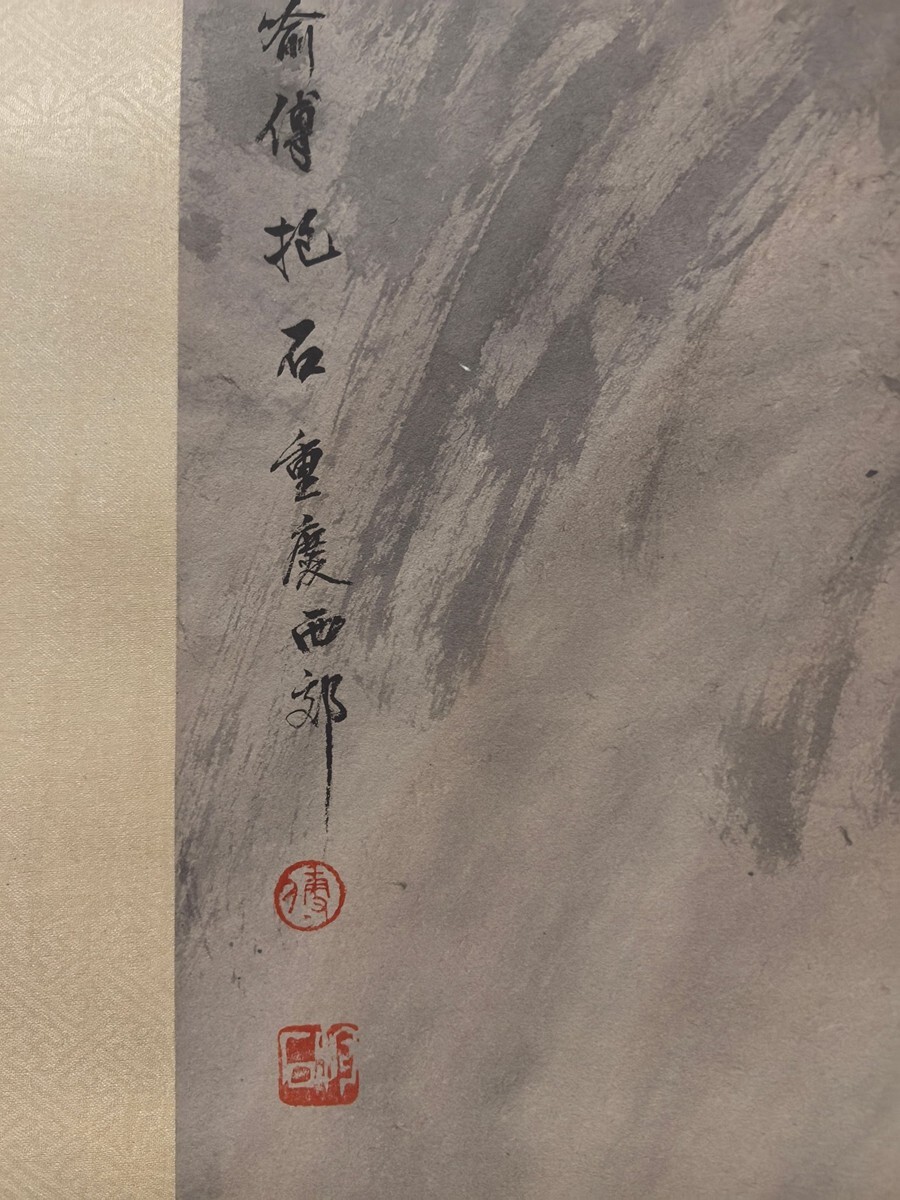 喻傅抱石重慶西郊
傅
抱石